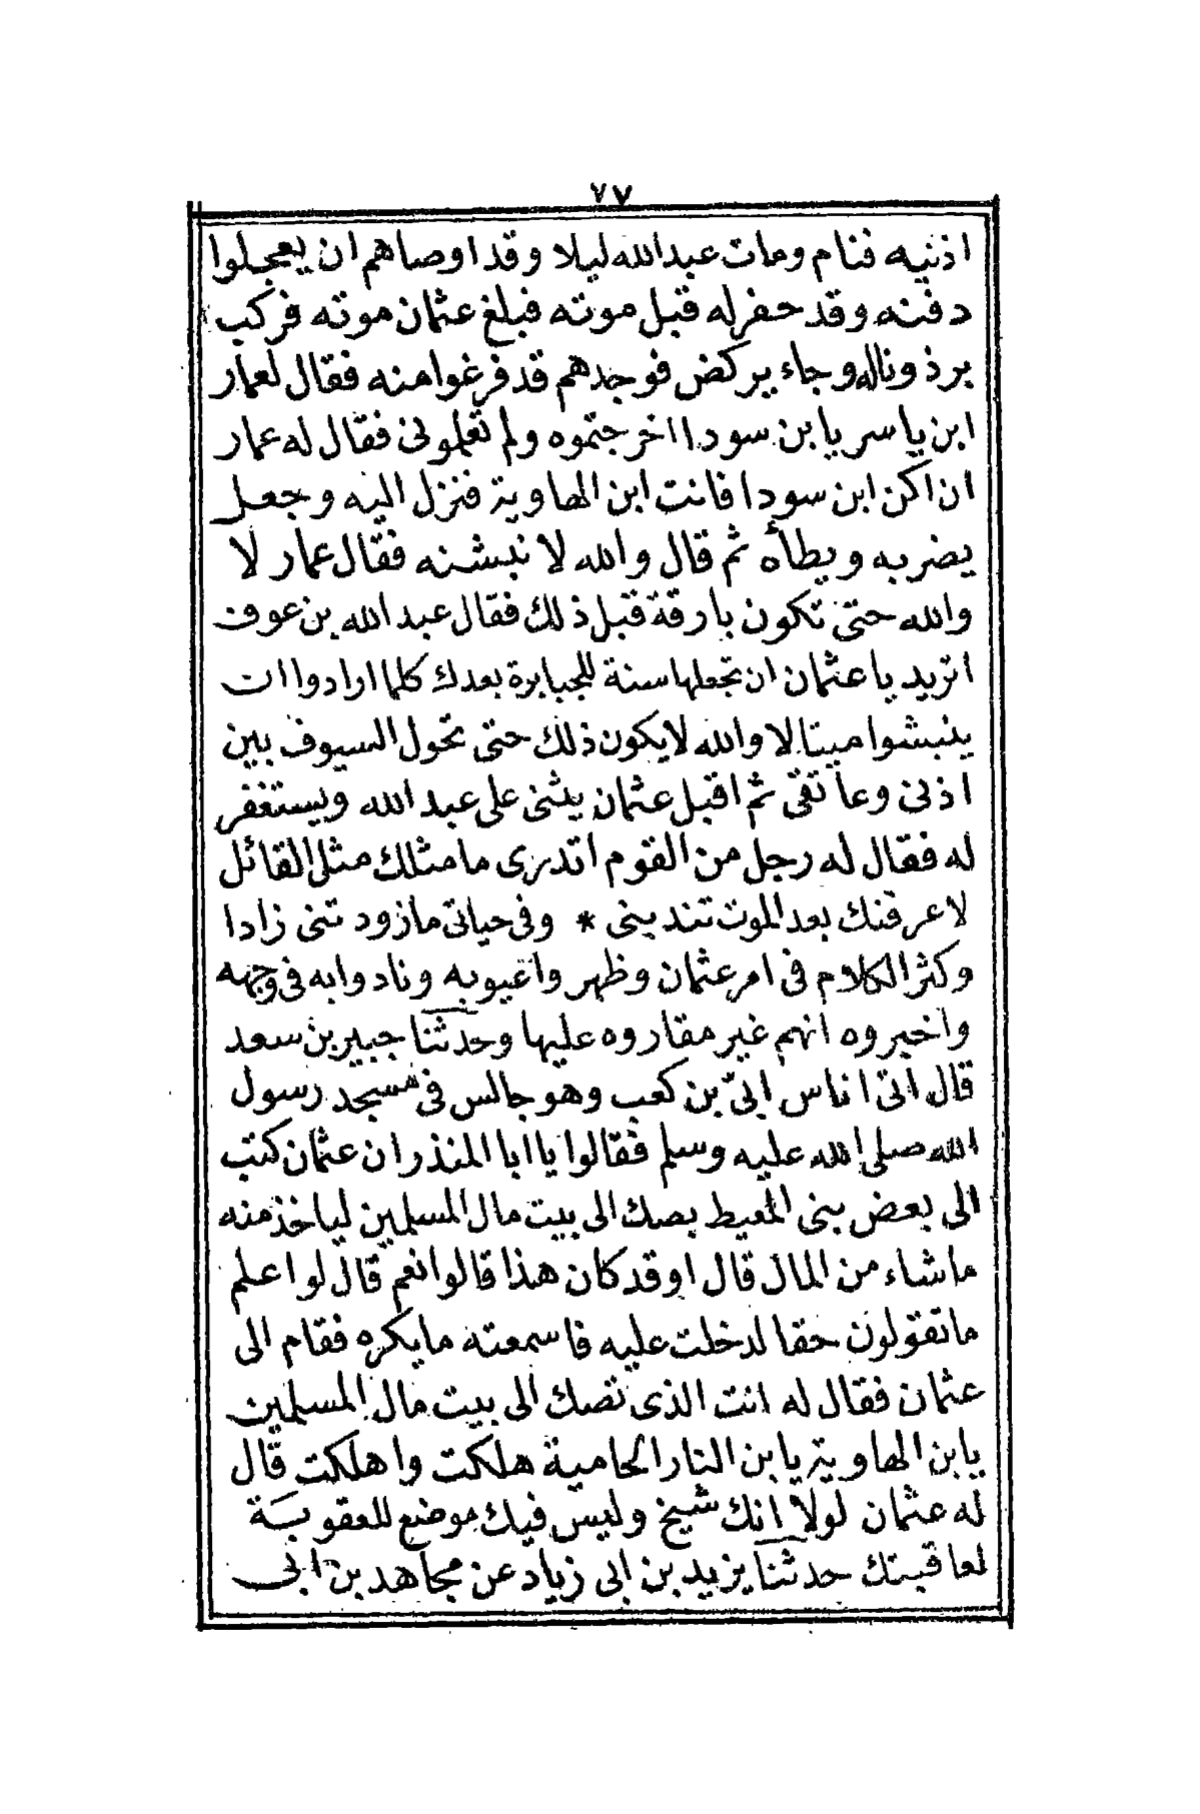 ٧٧
اذنيه فنام ومات عبدالله ليلا وقد اوصاهم ان يعجلوا
دفنه وقد حفر له قبل موته فبلغ عثمان موته فركب
برذونا له وجاء يركض فوجدهم قد فرغوا منه فقال لعمار
ابن ياسر يا بن سودا اخرجتموه ولم تعلمونى فقال له عمار
ان اكن ابن سودا فانت ابن الهاوية فنزل اليه وجعل
يضربه ويطأه ثم قال والله لا نبشنه فقال عمار لا
والله حتى تكون بارقة قبل ذلك فقال عبد الله بن عوف
اتريد يا عثمان ان تجعلها سنة للجبابرة بعدك كلما ارادوا ان
ينبشوا ميتا لا والله لا يكون ذلك حتى تحول السيوف بين
اذنى وعاتقى ثم اقبل عثمان يثنى على عبد الله ويستغفر
له فقال له رجل من القوم اتدرى ما مثلك مثل القائل
لا عرفنك بعد الموت تندبنى * وفى حياتى ما زودتنى زادا
وكثر الكلام فى امر عثمان وظهر واعيوبه ونادوا به فى وجهه
واخبروه انهم غير مقاروه عليها وحدثنا جبير بن سعد
قال اتى اناس ابىّ بن كعب وهو جالس فى مسجد رسول
الله صلى الله عليه وسلم فقالوا يا ابا المنذر ان عثمان كتب
الى بعض بنى المعيط بصك الى بيت مال المسلمين لياخذ منه
ما شاء من المال قال اوقد كان هذا قالوا نعم قال لو اعلم
ما تقولون حقا لدخلت عليه فاسمعته ما يكره فقام الى
عثمان فقال له انت الذى تصك الى بيت مال المسلمين
يا بن الهاوية يا بن النار الحامية هلكت واهلكت قال
له عثمان لولا انك شيخ وليس فيك موضع للعقوبة
لعاقبتك حدثنا يزيد بن ابى زياد عن مجاهد بن ابى